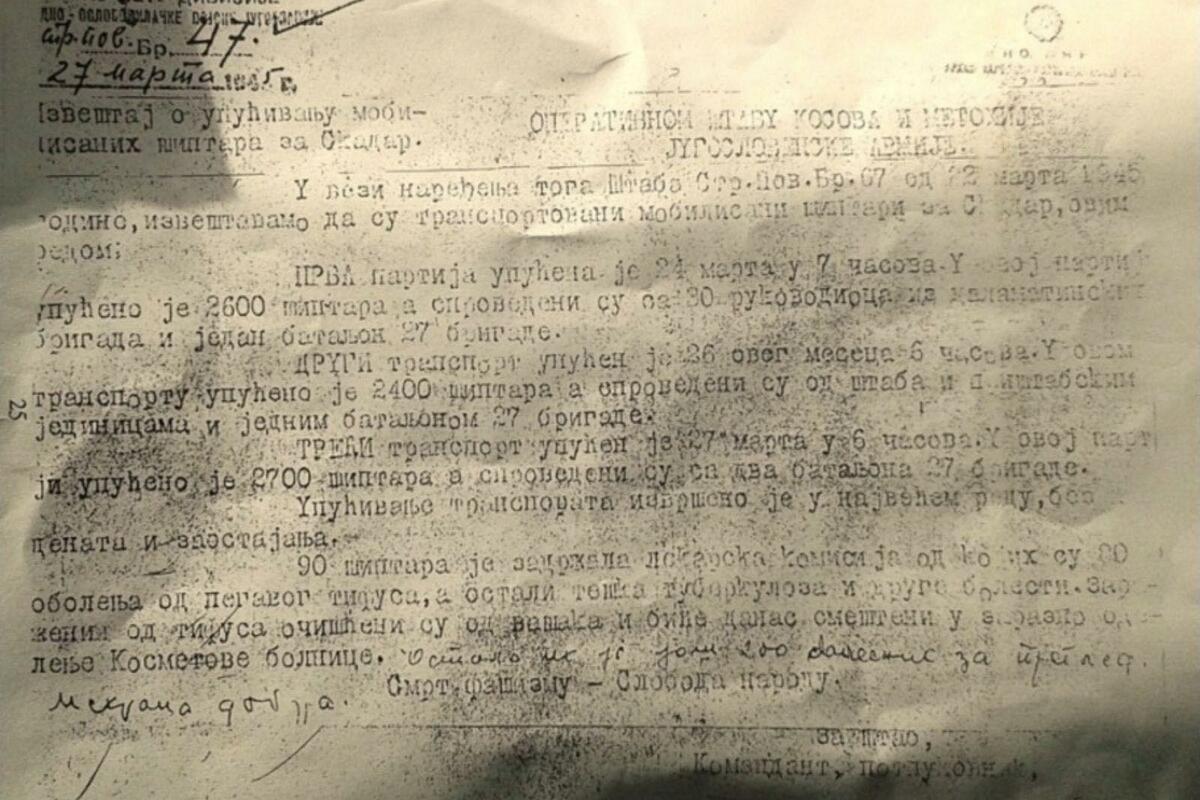 Стр.пов. Бр. 47.
27 марта 1945 г.
Извештај о упућивању моби-
лисаних шиптара за Скадар.
ОПЕРАТИВНОМ ШТАБУ КОСОВА И МЕТОХИЈЕ
ЈУГОСЛОВЕНСКЕ АРМИЈЕ.
У вези наређења тога Штаба Стр.Пов.Бр.67 од 22 марта 1945
године, извештавамо да су транспортовани мобилисани шиптари за Скадар, овим
редом:
ПРВА партија упућена је 24 марта у 7 часова. У овој партиј
упућено је 2600 шиптара а спроведени су са 30 руководиоца из
бригада и један батаљон 27 бригаде.
ДРУГИ транспорт упућен је 26 овег месеца 6 часова. У овом
транспорту упућено је 2400 шиптара а спроведени су од штаба и
јединицама и једним батаљоном 27 бригаде.
ТРЕЋИ транспорт упућен је 27 марта у 6 часова. У овој парт
ји упућено је 2700 шиптара а спроведени су са два батаљона 27 бригаде.
Упућивање транспората извршено је у највећем реду, без
и заостајања.
90 шиптара је задржала лекарска комисија од којих су
оболења од пегавог тифуса, а остали тешка туберкулоза и друге болести. Зар-
жени од тифуса очишћени су од вашака и биће данас смештени у заразно оде-
лење Косметове болнице. Остало их је још 200 болесних за преглед.
Исхрана добра.
Смрт фашизму – Слобода народу.
Командант, потпуковник,
25